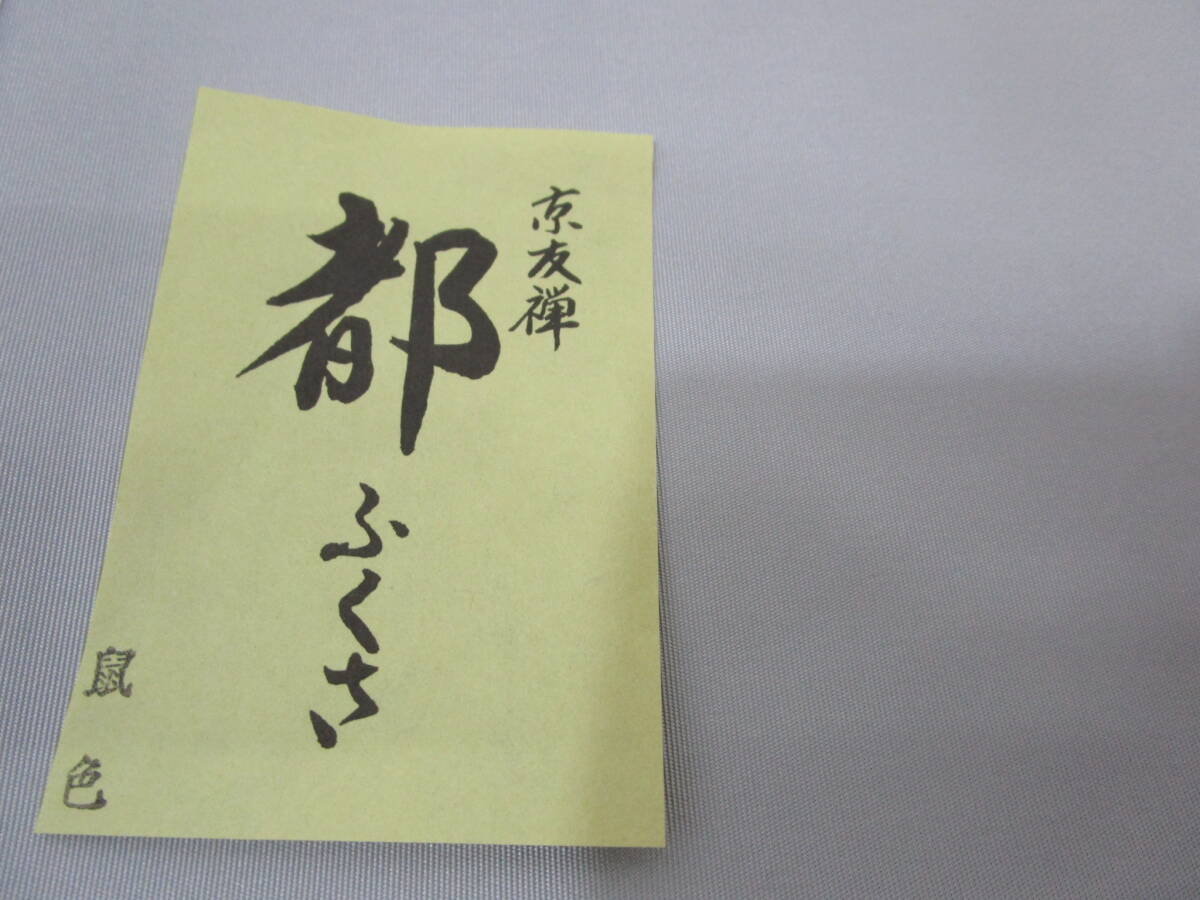 京友禅
都ふくさ
鼠色